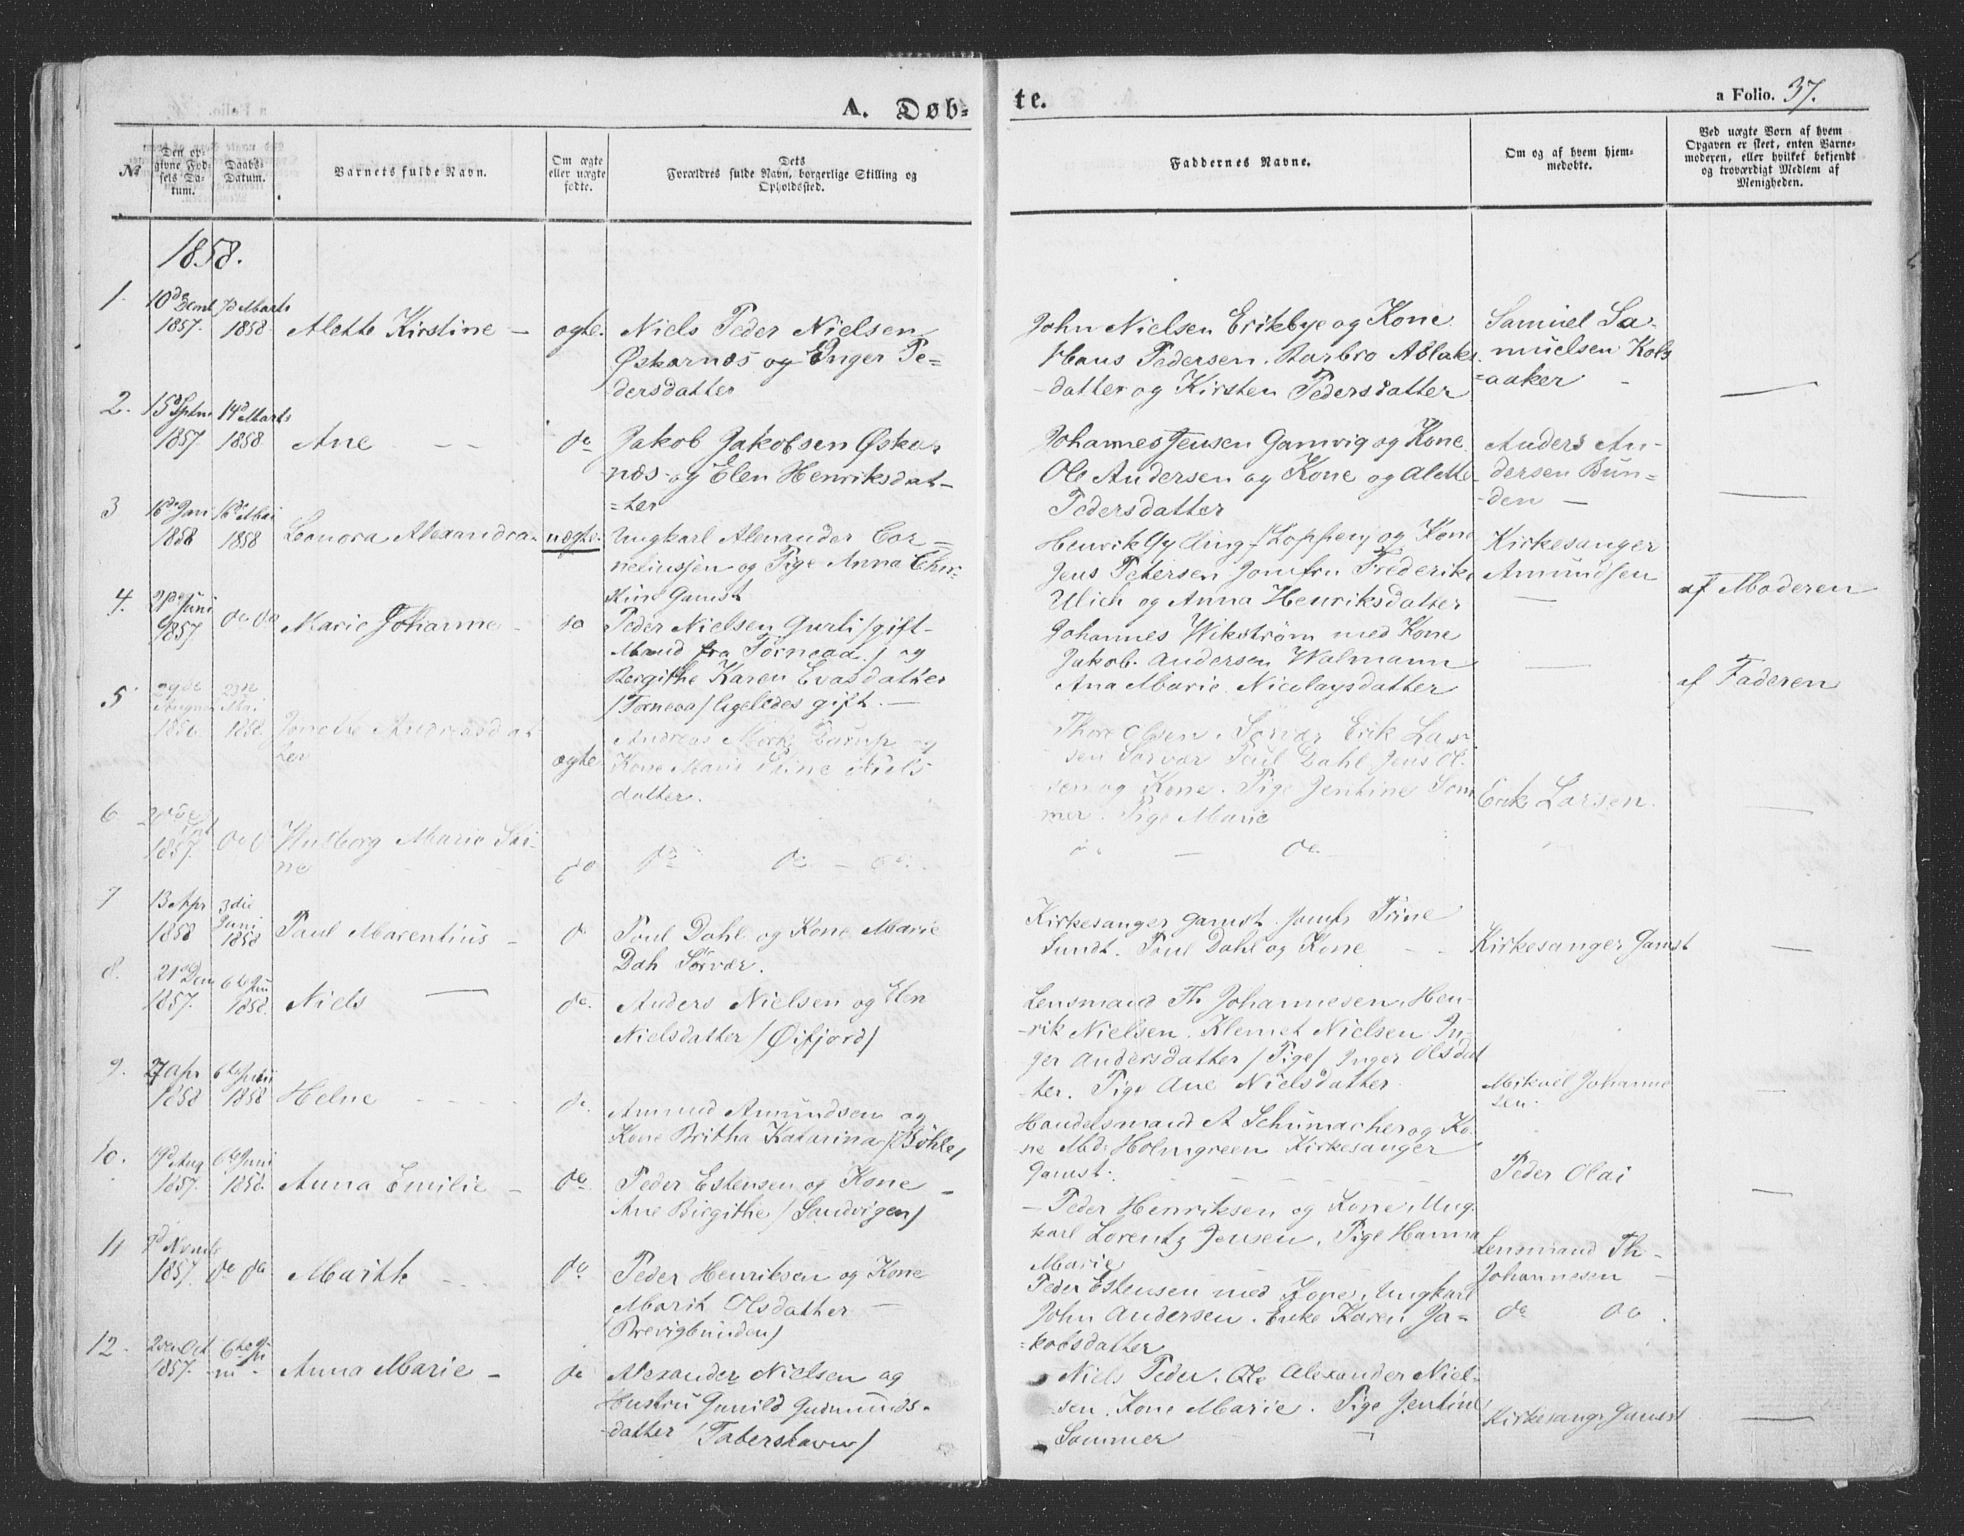 A. Døb=
te.
a Folio. 37.
№
Den op-
givne Fød-
sels Da-
tum.
Daabs-
Datum.
Barnets fulde Navn.
Om ægte
eller uægte
fødte.
Dets
Forældres fulde Navn, borgerlige Stilling og
Opholdssted.
Faddernes Navne.
Om og af hvem hjem-
medøbte.
Ved uægte Børn af hvem
Opgaven er skeet, enten Barne-
moderen, eller hvilket bekjendt
og troværdigt Medlem af
Menigheden.
1858.
1.
10de Decmb
1857.
7d Marts
1858
Alette Kirstine —
ægte.
Niels Peder Nielsen
Øskarnæs og Enger Pe=
dersdatter
John Nielsen Erikbye og Kone
Hans Pedersen. Barbro Aslaks
-datter og Kirsten Pedersdatter
Samuel Sa-
muelsen Kols
=aaker
—
2.
15d Sptm
1857.
14d Marts
1858
Ane — —
do
Jakob Jakobsen Øskar
næs og Elen Henriksdat-
=ter
Johannes Jensen Gamvig og Kone
Ole Andersen og Kone og Alette
Pedersdatter
Anders An-
dersen Bun=
den —
—
3
16de Jan
1858
16de Mai
1858
Leonora Alexandra
uægte.
Ungkarl Alexander Cor=
neliussen og Pige Anna Chir-
stine Gamst
Henrik Gylling /Loppen/ og Kone
Jens Petersen Jomfru Frederike
Ulich og Anna Henriksdatter
Kirkesanger
Amundsen
—
af Moderen
4.
21de Juni
1857.
do do
Marie Johanne -
do
Peder Nielsen Gurli /gift-
Mand fra Torneaa/ og
Bergithe Karen Evasdatter
/Torneaa/ ligeledes gift. —
Johannes Wikstrøm med Kone
Jakob Andersen Walmann
Ana Marie Nicolaysdatter
—
af Faderen
5
29de
August
1856.
23de
Mai
1858.
Andreasdat
ter
ægte
Andreas Mork og
Kone Marie Stine Niels
datter.
Thore Olsen. Sørvær Erik Lar
sen Sørvær Paul Dahl Jens Ol.
sen og Kone. Pige Jentine Som
mer. Pige Marie
Erik Larsen.
—
6
1857.
do
Marie
ne
do
do do — do.
do — do
7
13 Apr
1858
3die
Juni
1858
Paul Marentius -
do
Poul Dahl og Kone Marie
Dah Sørvær.
Kirkesanger Gamst. Jomfr Trine
Sundt. Poul Dahl og Kone
Kirkesanger Gamst
—
8.
21d Dcm
1857.
6te Jun
1858.
Niels —
do.
Anders Nielsen og Elen
Nielsdatter /Øifjord/
Lensmand Th Johannesen. Hen-
-rik Nielsen. Klemet Nielsen In-
ger Andersdatter /Pige/ Inger Olsdat
ter. Pige Ane Nielsdatter
Mikael Johanne
sen.
9.
27 Apr
1858
6te Juni
1858
Helne - - - -
do
Amund Amundsen og
Kone Britha Katarina
Handelsmand A Schumacher og Ko-
ne Md: Holmgreen Kirkesanger
Gamst.
Peder Olai
—
10.
19d Aug
1857.
6te Juni
1858.
Anna Emilie -
do.
Peder Estensen og Kone -
Ane Birgithe /Sandvigen/
— Peder Henriksen og Kone, Ung.
karl Lorentz Jensen. Pige Hanna
Marie
Lensmand Th-
Johannesen —
11
1857.
do do
Marith - - -
do
Peder Henriksen og Kone
Marit Olsdatter —
/Brevigbunden/
Peder Estensen med Kone, Ungkarl
John Andersen. Enke Karen Ja-
kobsdatter
do do.
12.
2den Oct
1857.
6te Ju
ni -
Anna Marie -
do
Alexander Nielsen og
Hustru Gunild Gudmunds-
datter
Niels Peder. Ole Alexander Niel-
sen. Kone Marie. Pige Jentine
Sommer
Kirkesang. Gamst
—